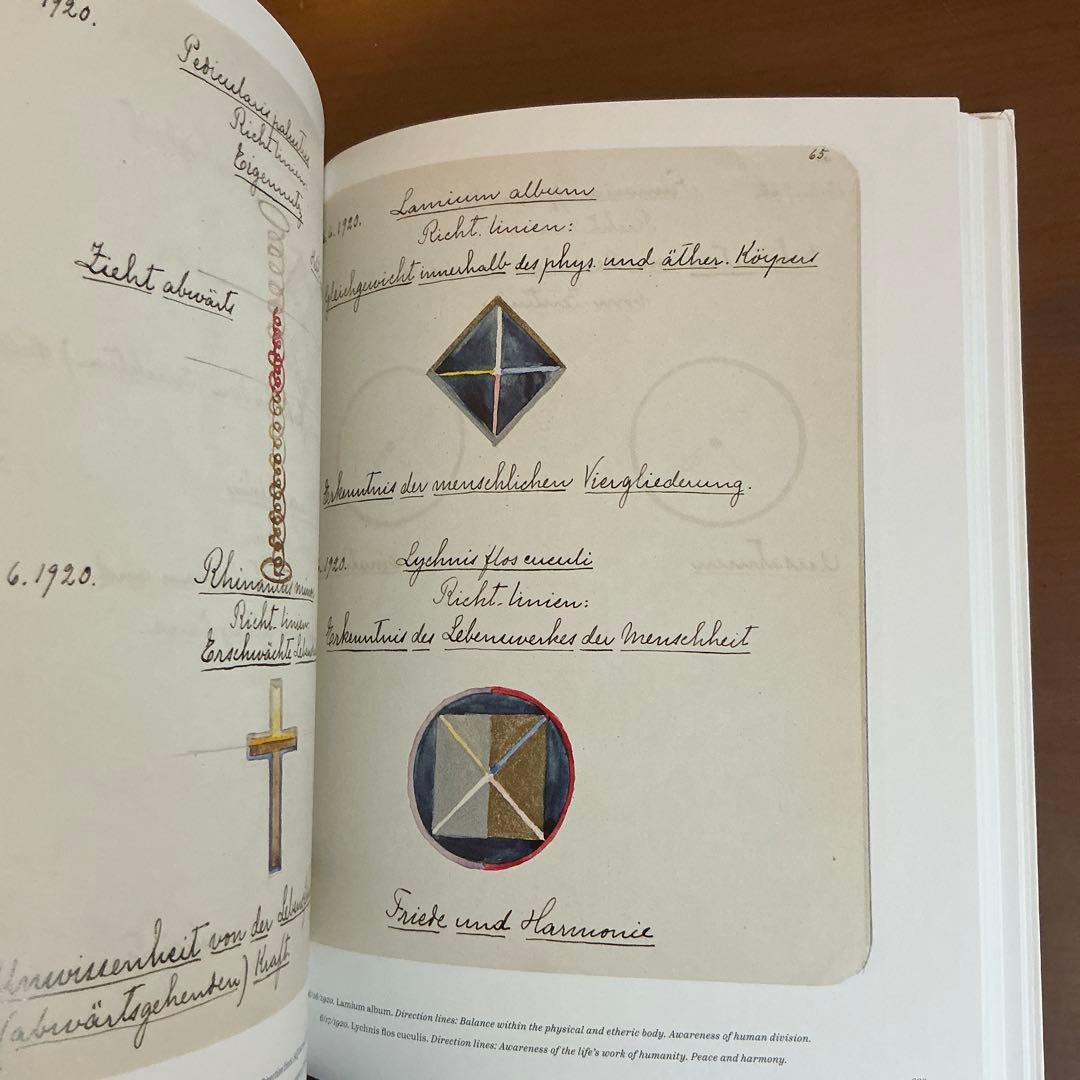 1920.
Pedicularis palustris
Richtlinien:
Eigennutz
Zieht abwärts
6.1920.
Rhinantus
Richt-linien:
Erschwächte
Unwissenheit von der
(abwärtsgehenden) Kraft.
65.
6.1920.
Lamium album
Richt.linien:
Gleichgewicht innerhalb des phys. und äther. Körpers
Erkenntnis der menschlichen Viergliederung.
1920.
Lychnis flos cuculi
Richt-linien:
Erkenntnis des Lebenwerkes der Menschheit
Friede und Harmonie
6/16/1920. Lamium album. Direction lines: Balance within the physical and etheric body. Awareness of human division.
6/17/1920. Lychnis flos cuculis. Direction lines: Awareness of the life's work of humanity. Peace and harmony.